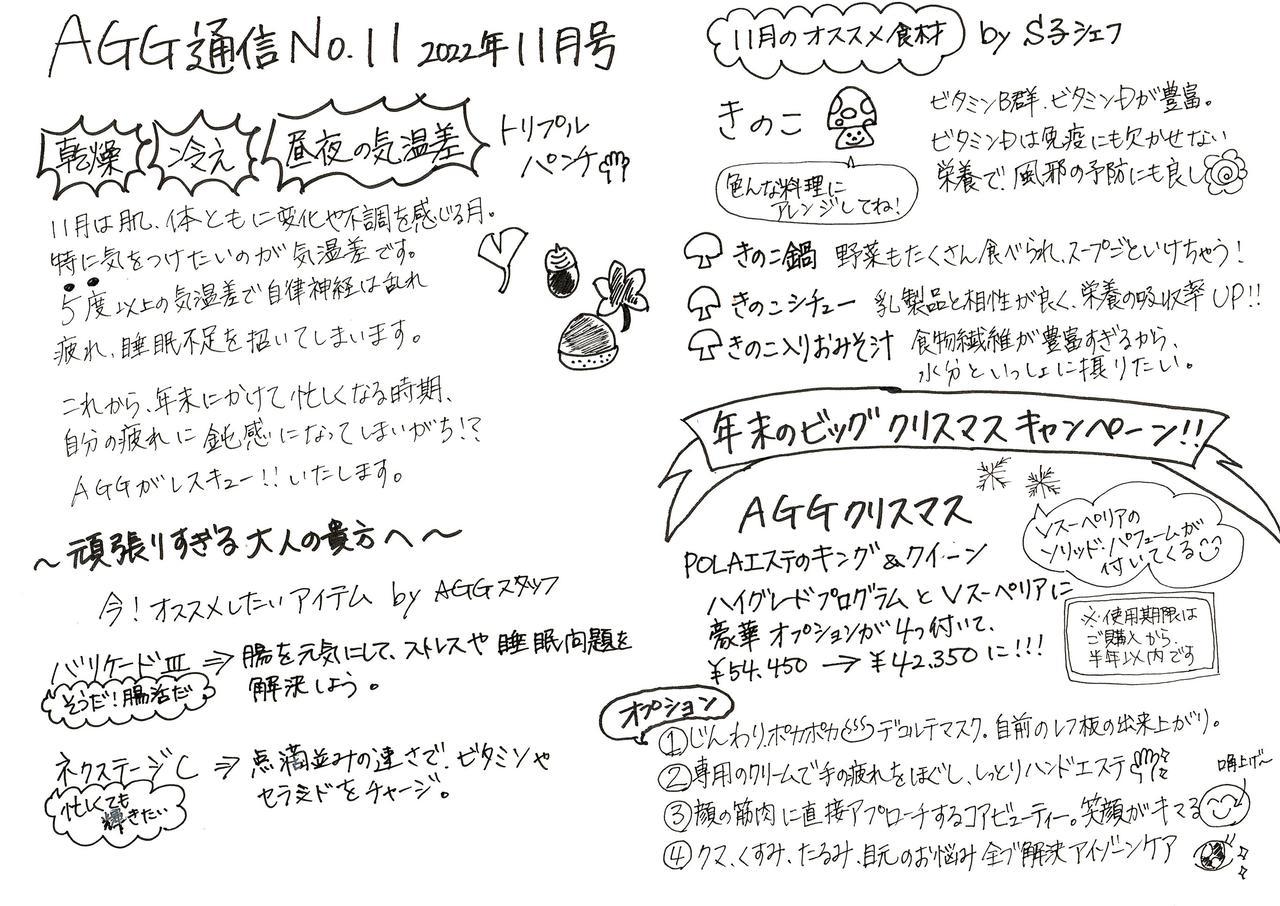 AGG通信 No.11 2022年11月号
乾燥 冷え 昼夜の気温差 トリプル
パンチ
11月は肌、体ともに変化や不調を感じる月。
特に気をつけたいのが気温差です。
5度以上の気温差で自律神経は乱れ
疲れ、睡眠不足を招いてしまいます。
これから、年末にかけて忙しくなる時期、
自分の疲れに鈍感になってしまいがち!?
AGGがレスキュー!!いたします。
～頑張りすぎる大人の貴方へ～
今!オススメしたいアイテム by AGGスタッフ
バリケードⅢ ⇒ 腸を元気にして、ストレスや睡眠問題を
解決しよう。
そうだ!腸活だ
ネクステージC ⇒ 点滴並みの速さで、ビタミンや
セラミドをチャージ。
忙しくても
輝きたい
11月のオススメ食材 by S子シェフ
きのこ
ビタミンB群、ビタミンDが豊富。
ビタミンDは免疫にも欠かせない
栄養で、風邪の予防にも良し
色んな料理に
アレンジしてね!
きのこ鍋 野菜もたくさん食べられ、スープごといけちゃう!
きのこシチュー 乳製品と相性が良く、栄養の吸収率UP!!
きのこ入りおみそ汁 食物繊維が豊富すぎるから、
水分といっしょに摂りたい。
年末のビッグクリスマスキャンペーン!!
AGGクリスマス
Vスーペリアの
ソリッド・パフュームが
付いてくる
POLAエステのキング&クイーン
ハイグレードプログラムとVスーペリアに
豪華オプションが4つ付いて、
¥54,450 → ¥42,350に!!!
※使用期限は
ご購入から、
半年以内です
オプション
①じんわりポカポカ デコルテマスク。自前のレフ板の出来上がり。
②専用のクリームで手の疲れをほぐし、しっとりハンドエステ
③顔の筋肉に直接アプローチするコアビューティー。笑顔がキマる
口角上げ〜
④クマ、くすみ、たるみ、目元のお悩み全ブ解決アイゾーンケア